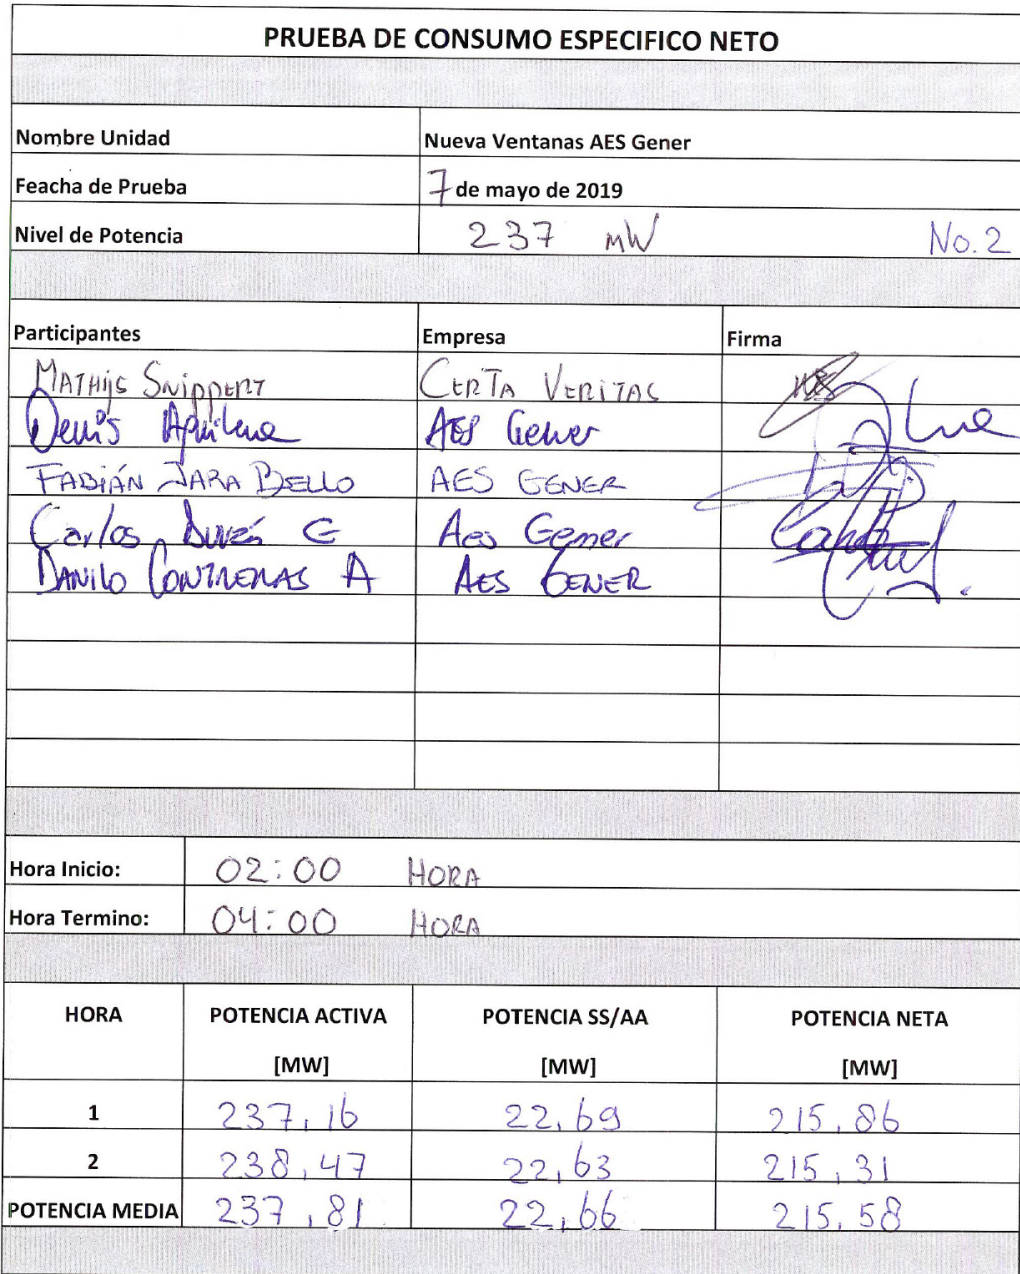 PRUEBA DE CONSUMO ESPECIFICO NETO
Nombre Unidad Nueva Ventanas AES Gener
Feacha de Prueba 7 de mayo de 2019
Nivel de Potencia 237 MW No. 2
Participantes Empresa Firma
MATHIJS SNIPPERT CERTA VERITAS
Denis Aguilera AES Gener
FABIÁN JARA BELLO AES GENER
Carlos Durán G Aes Gener
DANILO CONTRERAS A AES GENER
Hora Inicio: 02:00 HORA
Hora Termino: 04:00 HORA
HORA POTENCIA ACTIVA POTENCIA SS/AA POTENCIA NETA
[MW] [MW] [MW]
1 237,16 22,69 215,86
2 238,47 22,63 215,31
POTENCIA MEDIA 237,81 22,66 215,58